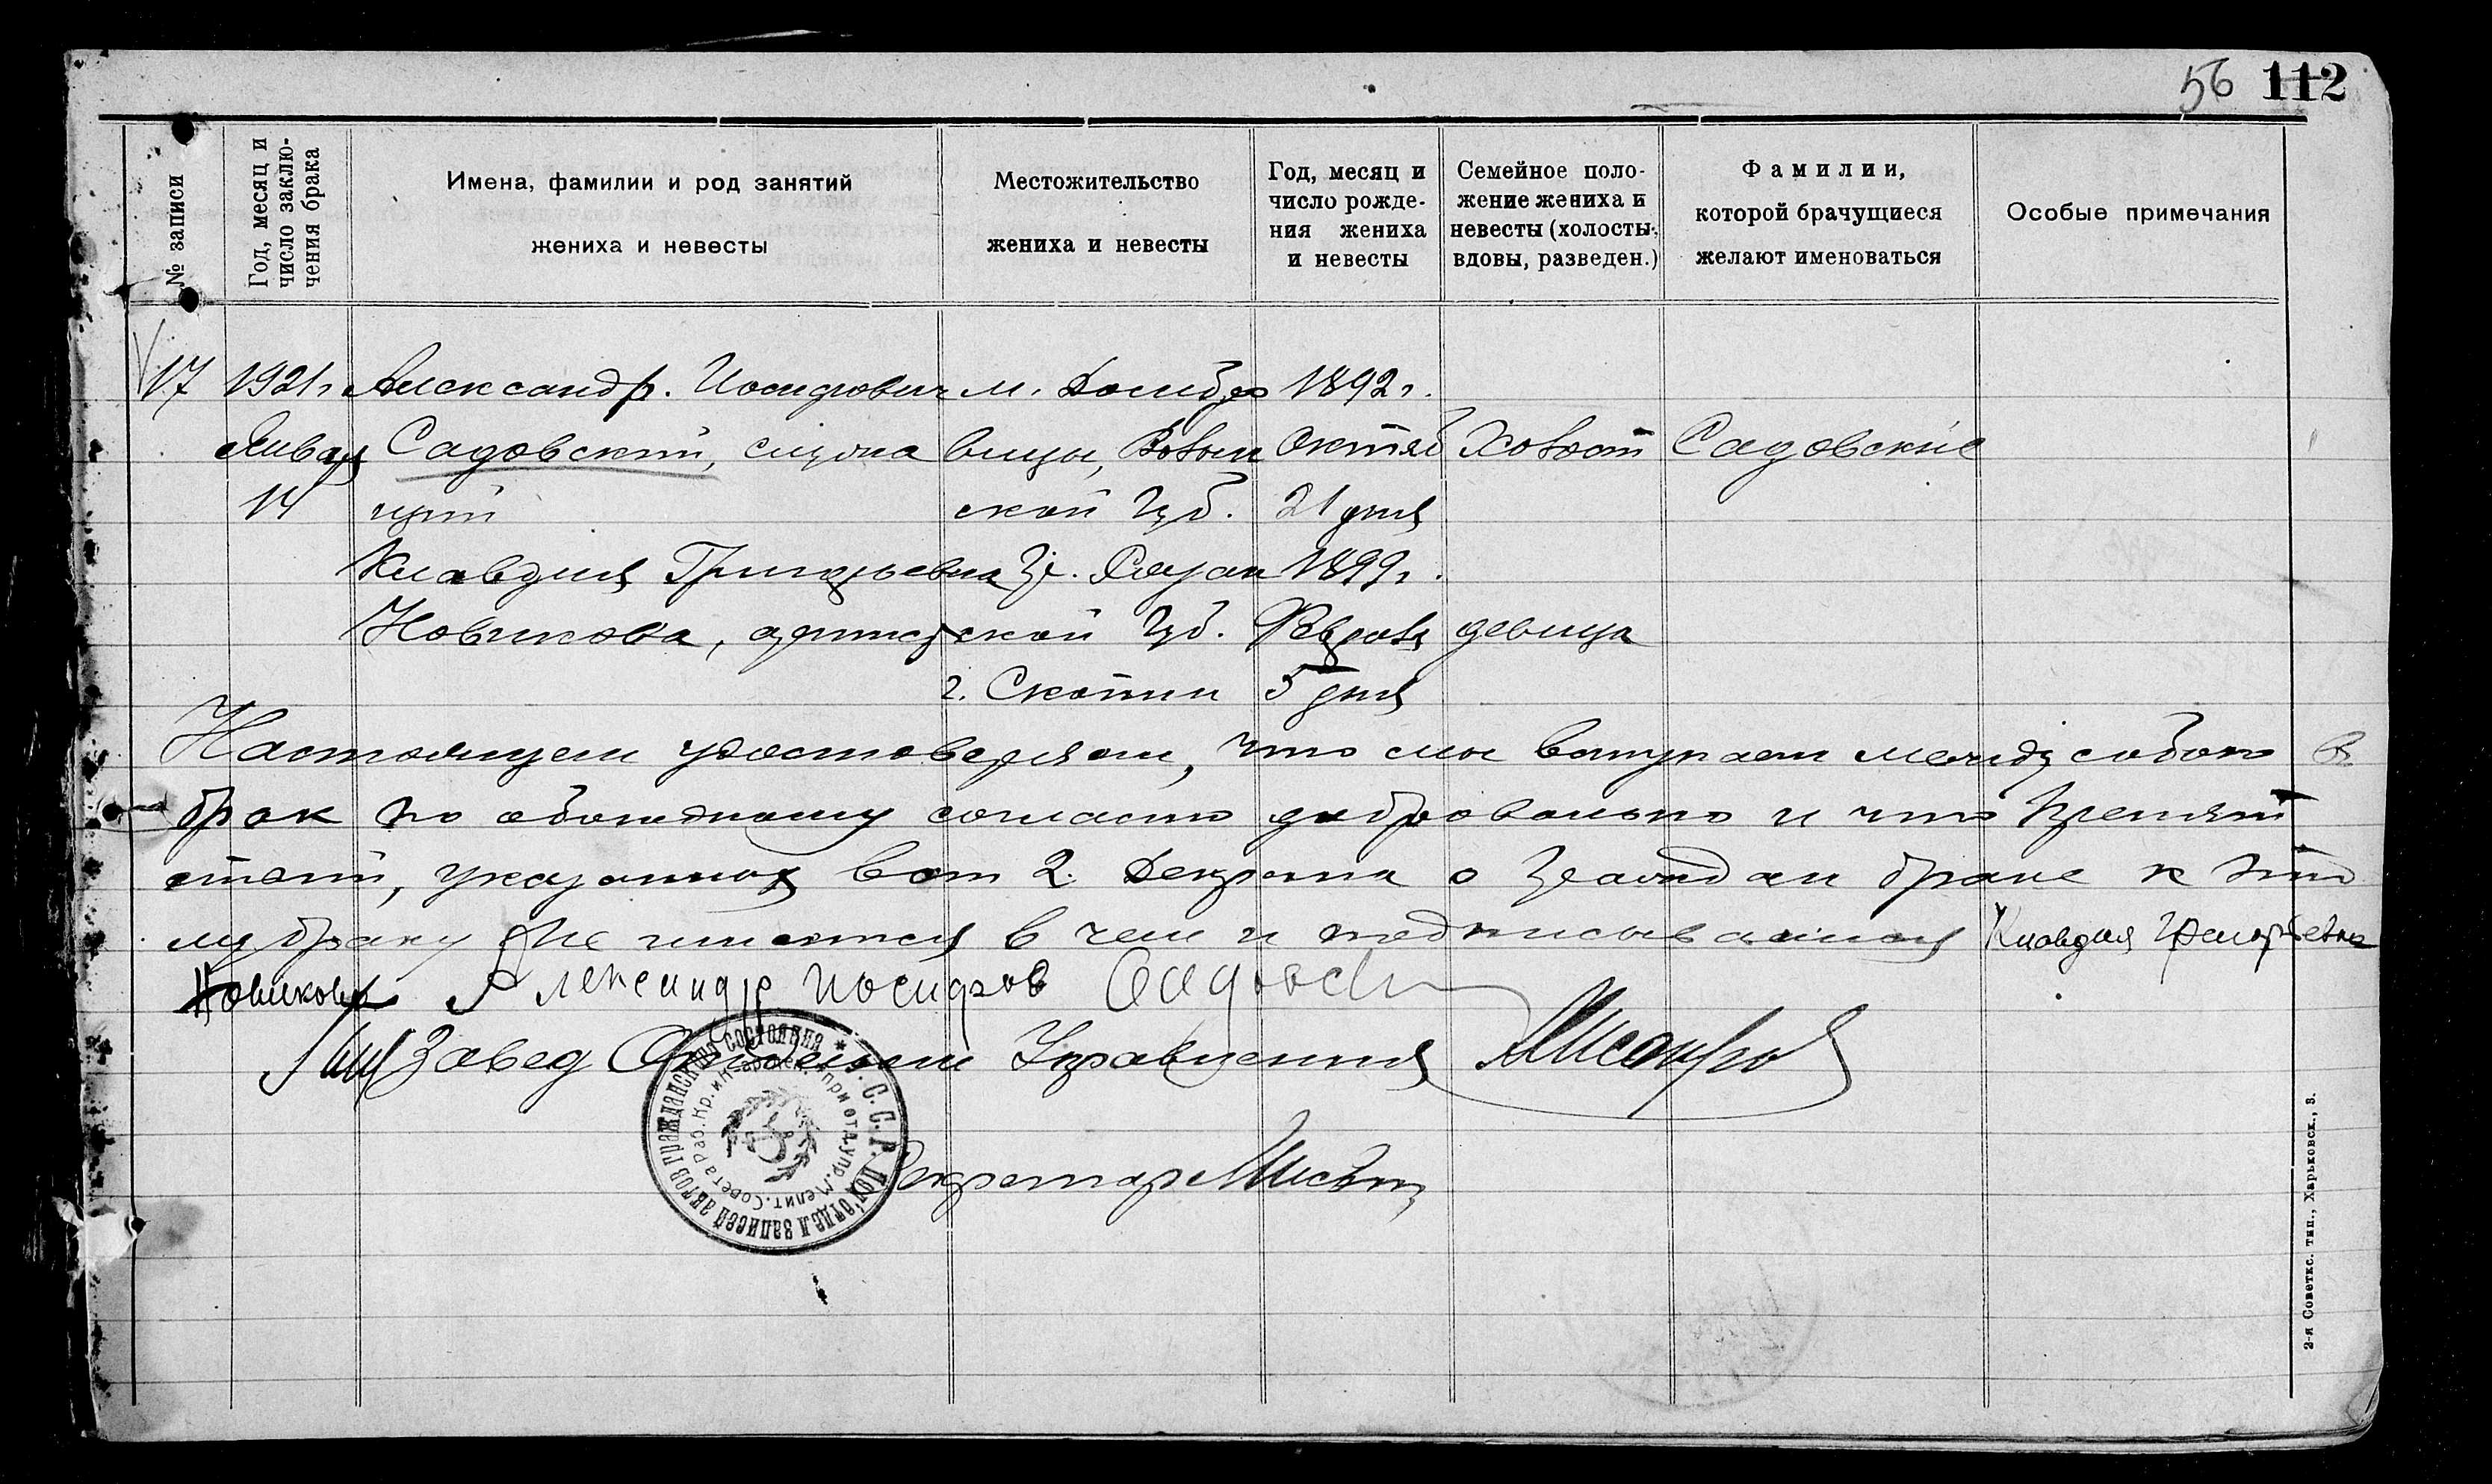 56 112
№ записи
Год, месяц и
число заклю-
чения брака
Имена, фамилии и род занятий
жениха и невесты
Местожительство
жениха и невесты
Год, месяц и
число рожде-
ния жениха
и невесты
Семейное поло-
жение жениха и
невесты (холосты,
вдовы, разведен.)
Фамилии,
которой брачущиеся
желают именоваться
Особые примечания
17 1921г Александр. Иосифович м. Домбро 1892г.
Января Садовский, служа вицы, Волын Октяб Холост Садовские
14 щий ской Губ. 21 дня
Клавдия Григорьевна Рязан 1899г.
Новикова, артист ской Губ. Февраля девица
г. Скопин 5 дня
Настоящем удостоверяем, что мы вступаем между собою в
брак по обоюдному согласию добровольно и что препят
ствий, указанных в 2. Декрета о браке к это
му браку не имеется в чем и подписываемся Клавдия Григорьевна
Новикова Александр Иосифов Садовск
Завед Отделом Управления
Секретарь
С.С.Р. Под'отдел записей актов гражданского состояния
при отд. упр. Мелит. Совета Раб. Кр. и Кр-армей.
2-я Советск. тип., Харьковск., 3.